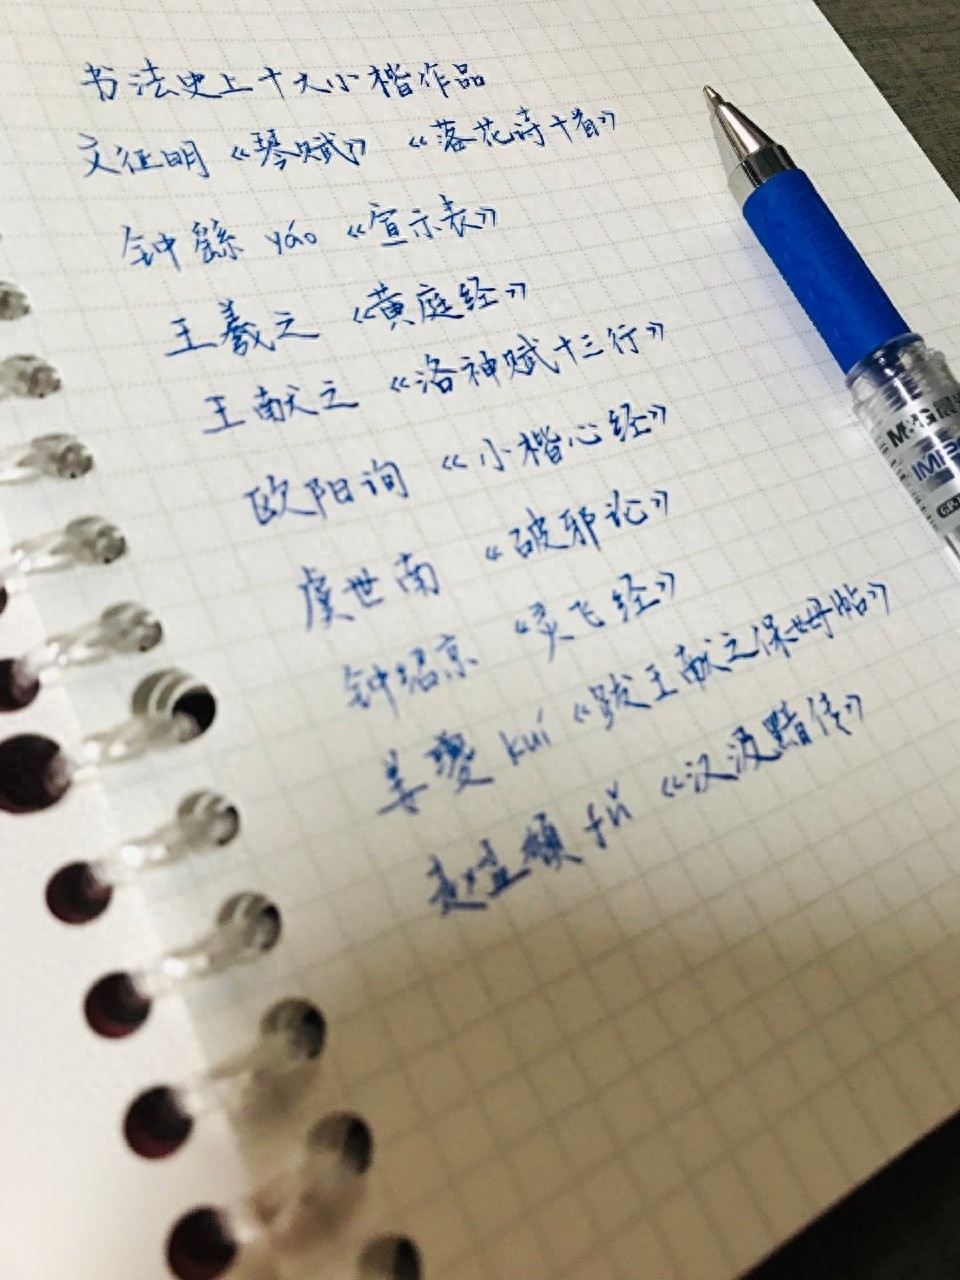 书法史上十大小楷作品
文征明《琴赋》《落花诗十首》
钟繇 yáo《宣示表》
王羲之《黄庭经》
王献之《洛神赋十三行》
欧阳询《小楷心经》
虞世南《破邪论》
钟绍京《灵飞经》
姜夔 kuí《跋王献之保姆帖》
赵孟頫 fǔ《汉汲黯传》
M&G